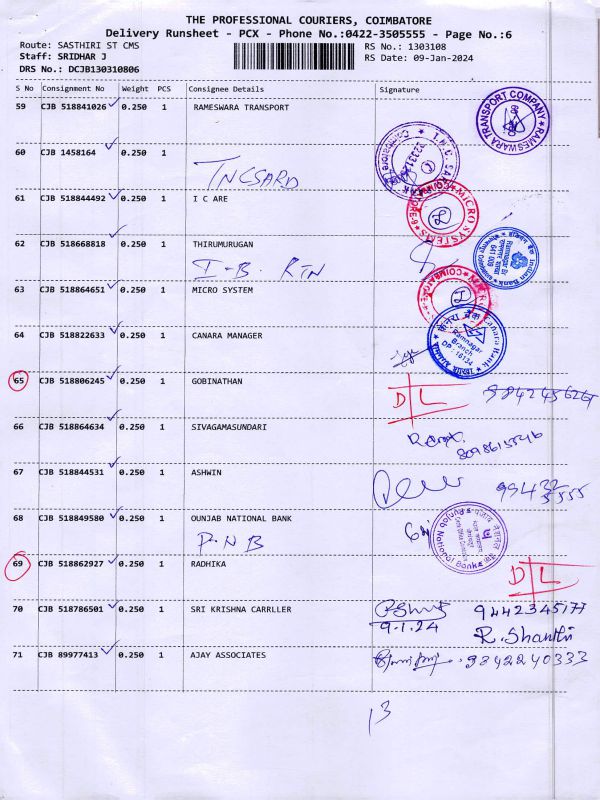 THE PROFESSIONAL COURIERS, COIMBATORE
Delivery Runsheet - PCX - Phone No.:0422-3505555 - Page No.:6
Route: SASTHIRI ST CMS
RS No.: 1303108
Staff: SRIDHAR J
RS Date: 09-Jan-2024
DRS No.: DCJB130310806
S No Consignment No Weight PCS Consignee Details Signature
59 CJB 518841026 0.250 1 RAMESWARA TRANSPORT
RAMESWARA TRANSPORT COMPANY
60 CJB 1458164 0.250 1
TNCSARD
Coimbatore
61 CJB 518844492 0.250 1 I C ARE
MICRO SYSTEMS
62 CJB 518668818 0.250 1 THIRUMURUGAN
I-B. RTN
Indian Bank
63 CJB 518864651 0.250 1 MICRO SYSTEM
COIMBATORE
64 CJB 518822633 0.250 1 CANARA MANAGER
Canara Bank
Ramnagar
Branch
DP: 16134
65 CJB 518806245 0.250 1 GOBINATHAN
D L
66 CJB 518864634 0.250 1 SIVAGAMASUNDARI
67 CJB 518844531 0.250 1 ASHWIN
99432
5555
68 CJB 518849580 0.250 1 OUNJAB NATIONAL BANK
P.NB
Punjab National Bank
69 CJB 518862927 0.250 1 RADHIKA
D L
70 CJB 518786501 0.250 1 SRI KRISHNA CARRLLER
9.1.24
9442345177
R. Shanthi
71 CJB 89977413 0.250 1 AJAY ASSOCIATES
9842240333
13